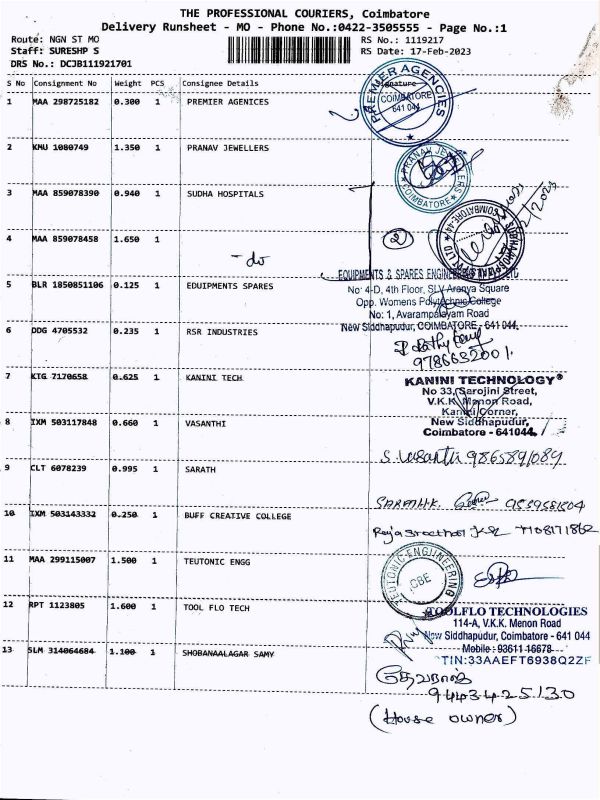 THE PROFESSIONAL COURIERS, Coimbatore
Delivery Runsheet - MO - Phone No.:0422-3505555 - Page No.:1
Route: NGN ST MO RS No.: 1119217
Staff: SURESHP S RS Date: 17-Feb-2023
DRS No.: DCJB111921701
S No Consignment No Weight PCS Consignee Details Signature
1 MAA 298725182 0.300 1 PREMIER AGENICES
PREMIER AGENCIES
COIMBATORE
641 044
2 KMU 1080749 1.350 1 PRANAV JEWELLERS
PRANAV JEWELLERS
COIMBATORE
3 MAA 859078390 0.940 1 SUDHA HOSPITALS
4 MAA 859078458 1.650 1
- do
2
5 BLR 1850851106 0.125 1 EDUIPMENTS SPARES
EQUIPMENTS & SPARES ENGINEERING
No: 4-D, 4th Floor, SLV Aranya Square
Opp. Womens Polytechnic College
No: 1, Avarampalayam Road
New Siddhapudur, COIMBATORE - 641 044.
6 DDG 4705532 0.235 1 RSR INDUSTRIES
9786632001.
7 KTG 7170658 0.625 1 KANINI TECH
KANINI TECHNOLOGY®
No 33, Sarojini Street,
V.K.K. Menon Road,
Kanini Corner,
New Siddhapudur,
Coimbatore - 641044.
8 IXM 503117848 0.660 1 VASANTHI
S. Vasanthi 9865891089
9 CLT 6078239 0.995 1 SARATH
SARATH.K.
10 IXM 503143332 0.250 1 BUFF CREATIVE COLLEGE
11 MAA 299115007 1.500 1 TEUTONIC ENGG
TEUTONIC ENGINEERING
CBE
12 RPT 1123805 1.600 1 TOOL FLO TECH
TOOLFLO TECHNOLOGIES
114-A, V.K.K. Menon Road
New Siddhapudur, Coimbatore - 641 044
Mobile : 93611 16678
TIN:33AAEFT6938Q2ZF
13 SLM 314064684 1.100 1 SHOBANAALAGAR SAMY
9443425130
(House owner)